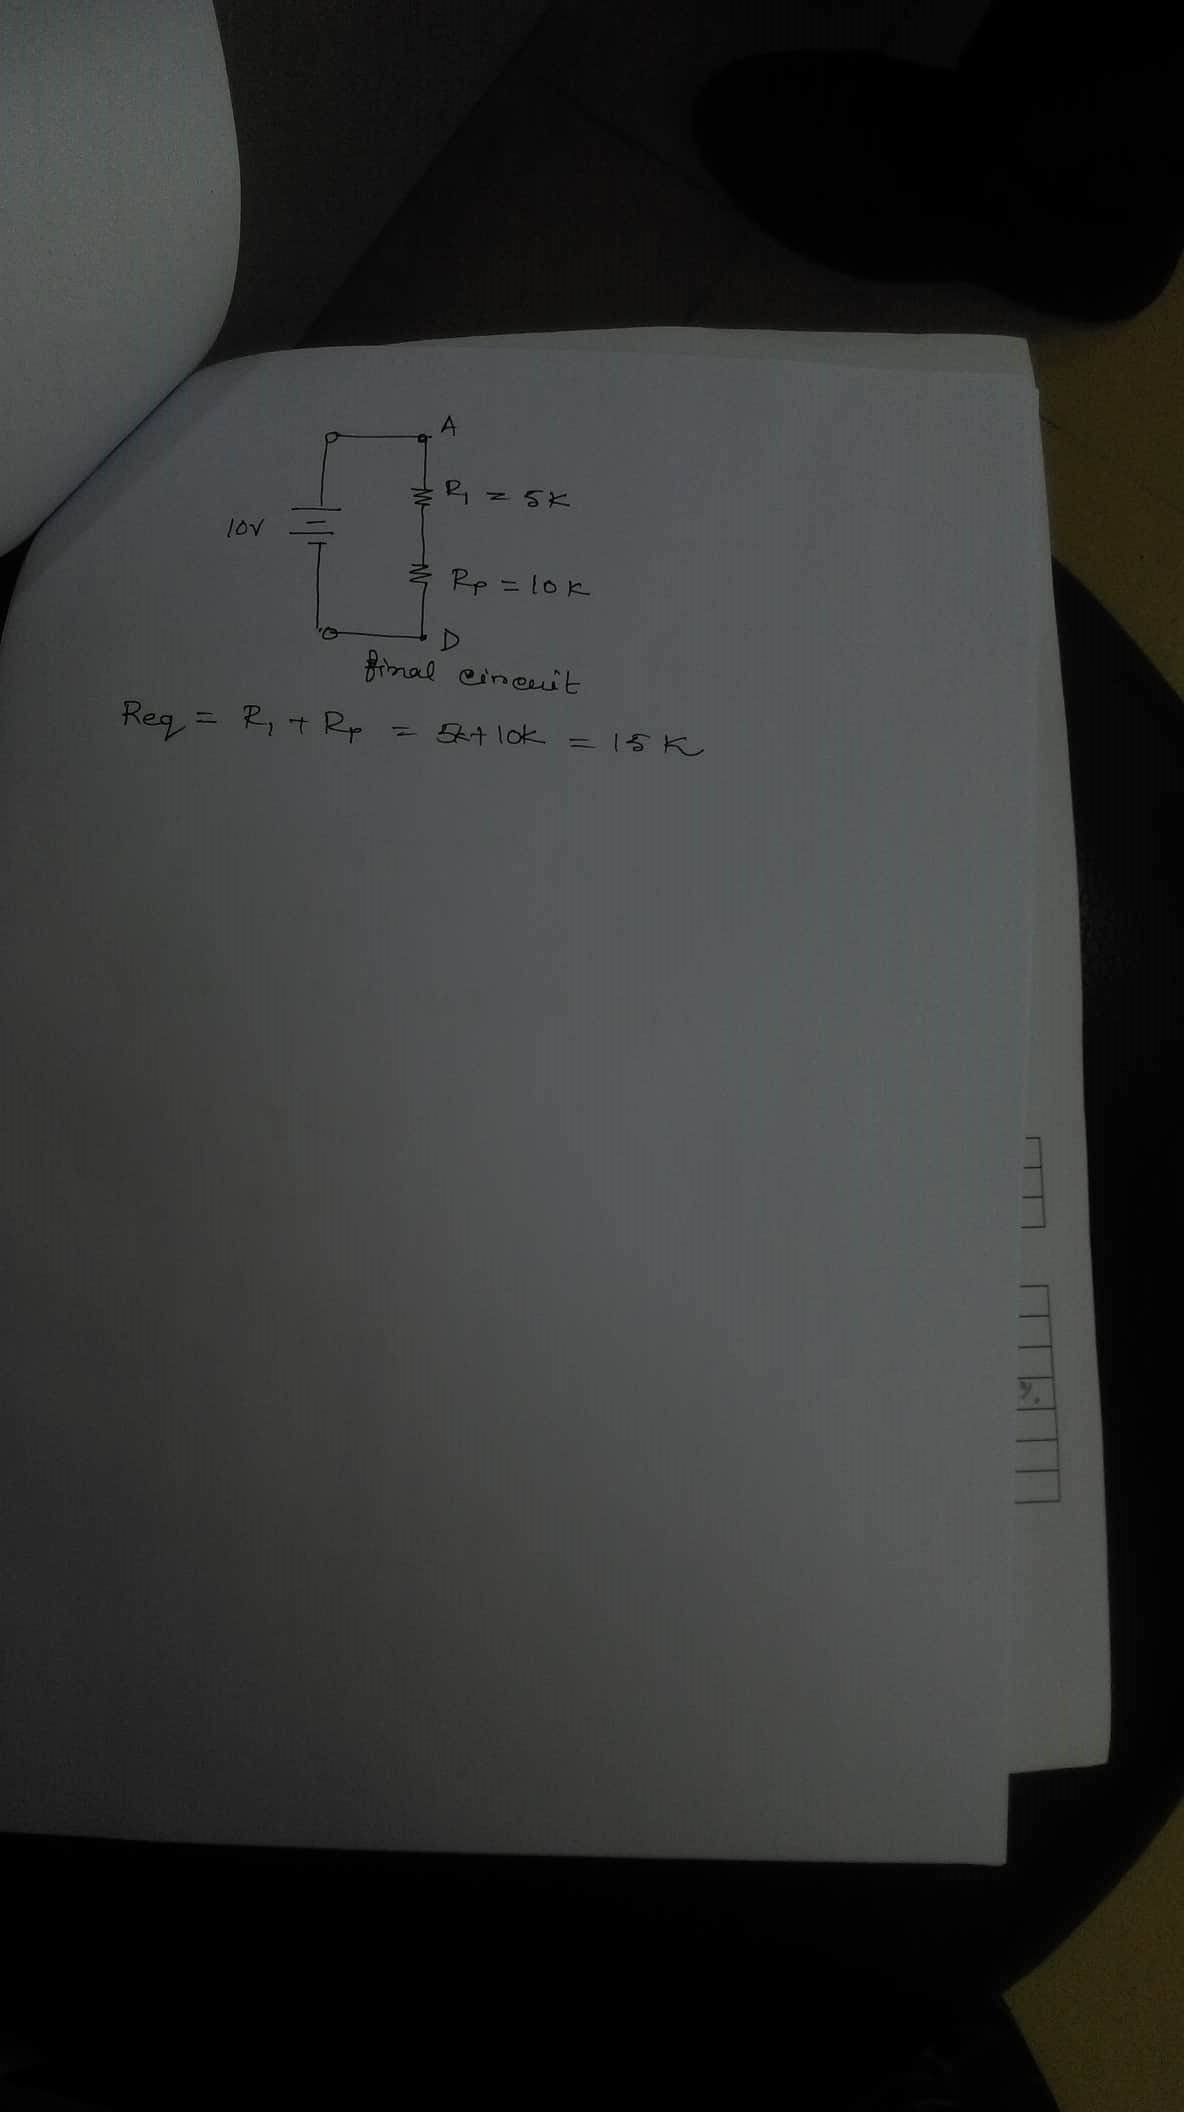 A
R1 = 5K
10V
Rp = 10K
D
final circuit
Req = R1 + Rp = 5k+10k = 15K